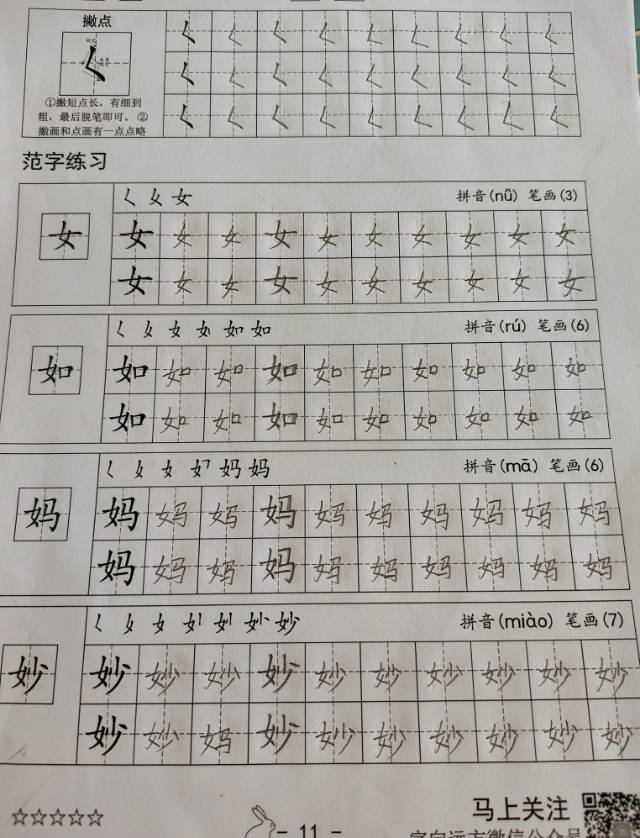 撇点
①撇短点长，有细到
粗，最后脱笔即可。②
撇画和点画有一点点略
范字练习
女 拼音(nǚ) 笔画(3)
女
女 女 女 女 女 女 女 女 女 女
女 女 女 女 女 女 女 女 女 女
女 如 如 拼音(rú) 笔画(6)
如
如 如 如 如 如 如 如 如 如 如
如 如 如 如 如 如 如 如 如 如
女 妈 妈 拼音(mā) 笔画(6)
妈
妈 妈 妈 妈 妈 妈 妈 妈 妈 妈
妈 妈 妈 妈 妈 妈 妈 妈 妈 妈
女 妙 妙 拼音(miào) 笔画(7)
妙
妙 妙 妙 妙 妙 妙 妙 妙 妙 妙
妙 妙 妈 妙 妙 妙 妙 妙 妙 妙
☆☆☆☆☆
- 11 -
马上关注
字向远方微信公众号